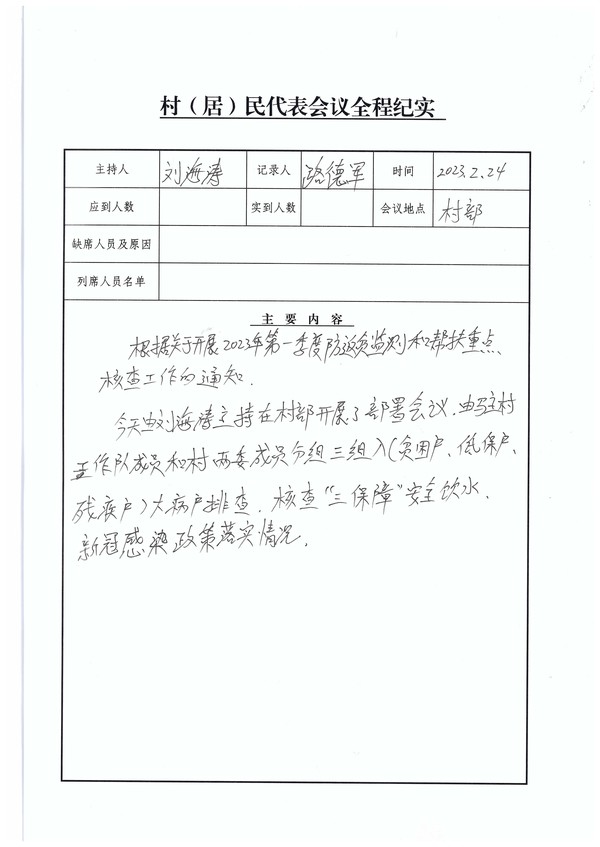 村（居）民代表会议全程纪实
主持人 刘海涛 记录人 路德军 时间 2023.2.24
应到人数 实到人数 会议地点 村部
缺席人员及原因
列席人员名单
主要内容
根据关于开展2023年第一季度防返贫监测和帮扶重点
核查工作的通知.
今天由刘海涛主持在村部开展了部署会议.由驻村
工作队成员和村两委成员分组三组入(贫困户、低保户、
残疾户)大病户排查.核查"三保障"安全饮水.
新冠感染政策落实情况.